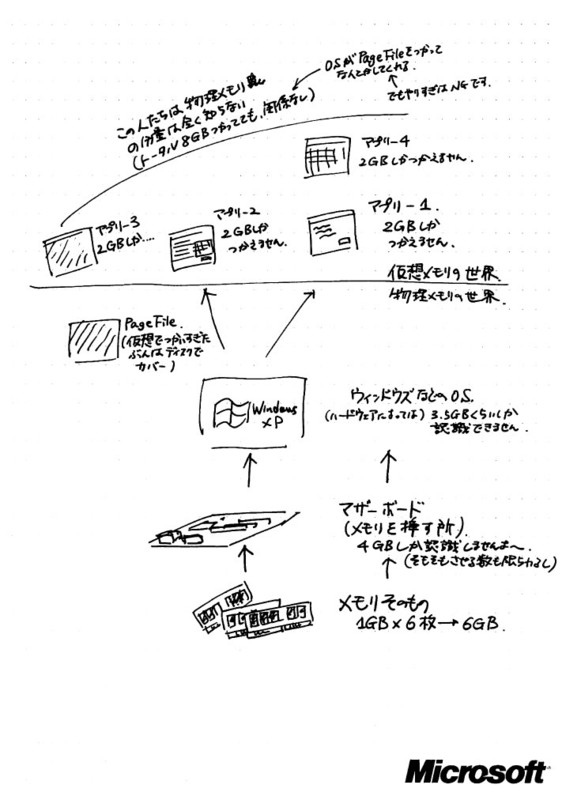 OSがPageFileをつかって
なんとかしてくれる.
でもやりすぎはNGです.
この人たちは物理メモリ
の分量は全く知らない
(トータル8GBつかってても、関係なし)
アプリー4
2GBしかつかえません.
アプリー3
2GBしか....
アプリー2
2GBしか
つかえません.
アプリー1.
2GBしか
つかえません.
仮想メモリの世界
物理メモリの世界.
PageFile.
(仮想でつかいすぎた
ぶんはディスクで
カバー)
Windows
XP
ウィンドウズなどのOS.
(ハードウェアによっては) 3.5GBくらいしか
認識できません.
マザーボード
(メモリを挿す所).
4GBしか認識しませんよ〜.
(そもそもさせる数も限られるし)
メモリそのもの
1GB×6枚→6GB.
Microsoft